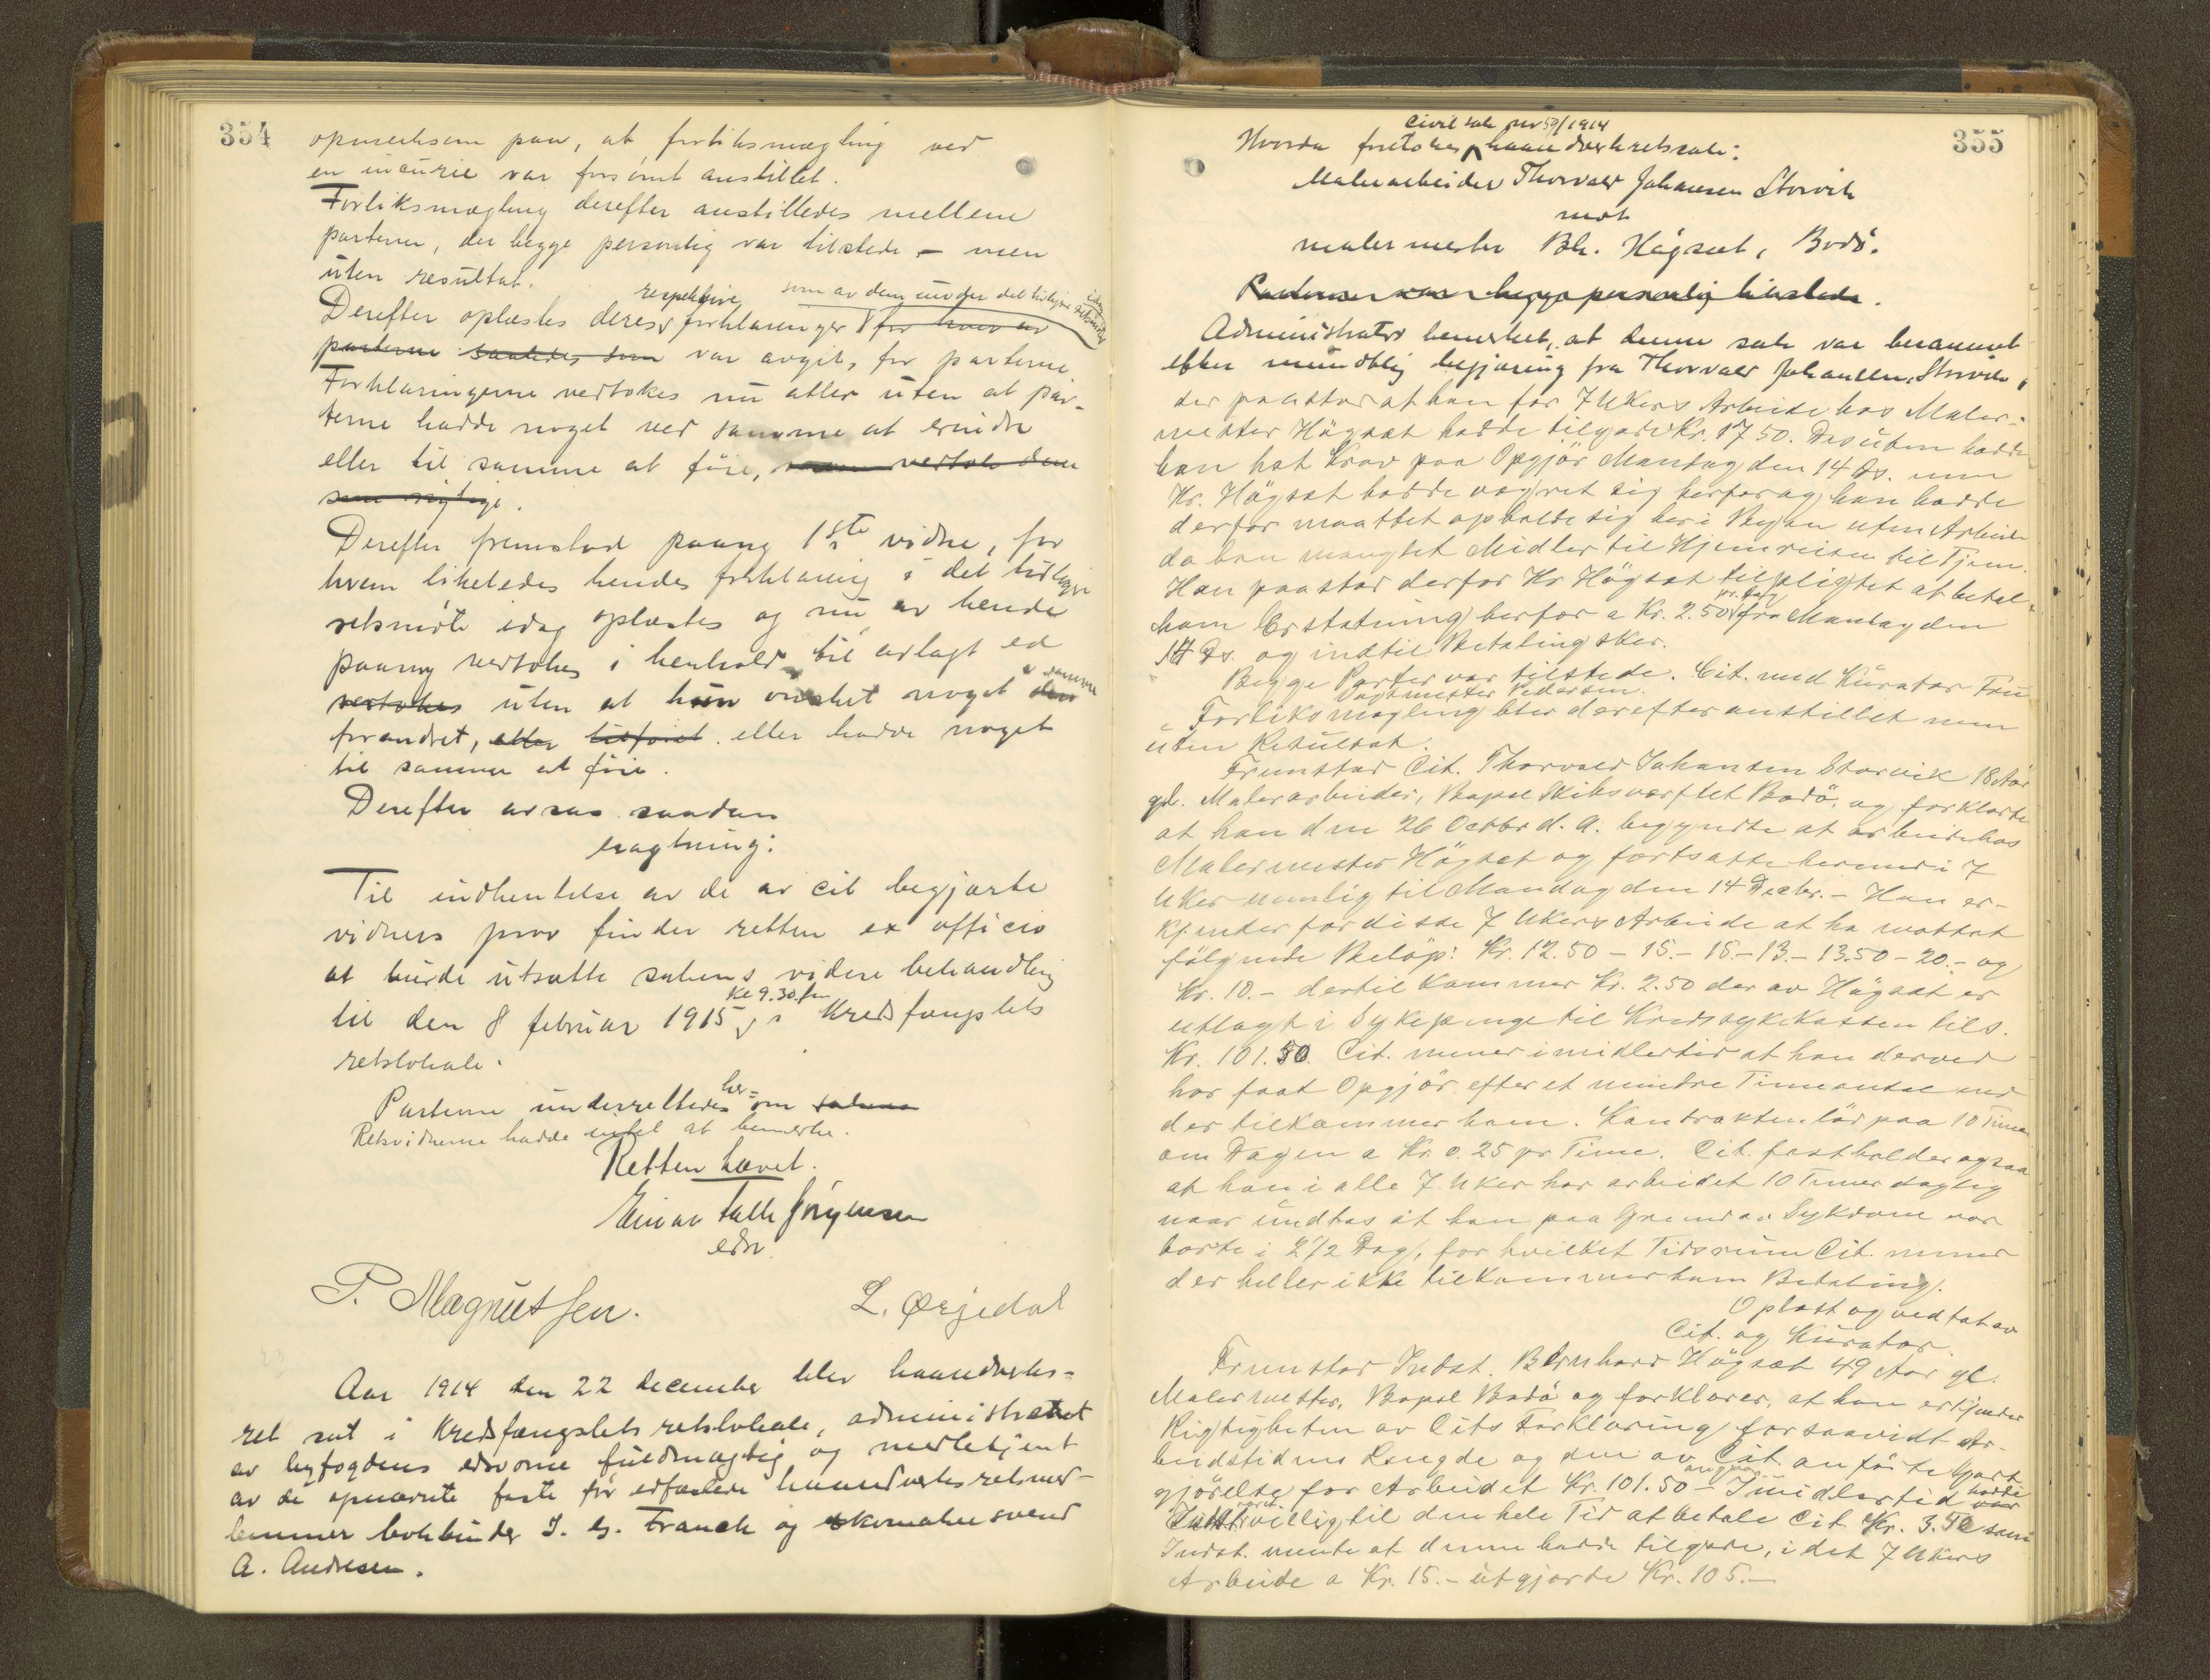 354
opmerksom paa, at forliksmægling ved
en incurie var forsømt anstillet.
Forliksmægling derefter anstilledes mellem
parterne, der begge personlig var tilstede – men
uten resultat.
respektive som av dem under det tidligere idag
Derefter oplæstes deres forklaringer for hver av
parterne saaledes som var avgit, for parterne
Forklaringerne vedtokes nu atter uten at par-
terne hadde noget ved samme at erindre
eller til samme at føie, vedtok dem
som rigtige.
Derefter fremstod paany 1ste vidne, for
hvem likeledes hendes forklaring i det tidligere
retsmøte idag oplæstes og nu av hende
paany vedtokes i henhold til avlagt ed
i samme
vedtokes uten at hun ønsket noget den
forandret, eller tilføiet eller hadde noget
til samme at føie.
Derefter avsaas saadan
eragtning:
Til indhentelse av de av cit begjærte
vidners prov finder retten ex officio
at burde utsætte sakens videre behandling
kl 9.30 fm
til den 8 februar 1915, i Kredsfængslets
retslokale.
her-
Parterne underrettedes om
Retsvidnerne hadde intet at bemerke.
Retten hævet.
Einar Falk Jörgensen
edsv.
P. Magnussen.
L. Ørjedal
Aar 1914 den 22 december blev haandverks-
ret sat i Kredsfængslets retslokale, administreret
av byfogdens edsvorne fuldmægtig og medbetjent
av de opnævnte faste før edfæstede haandverksretsmed-
lemmer bokbinder J. G. Franck og skomakersvend
A. Andresen.
355
Civil sak nr 57/1914
Hvorda foretokes haandverksretssak:
Malerarbeider Thorvald Johansen Storvik
mot
malermester Bh. Högsæt, Bodö.
Parterne var begge personlig tilstede.
Administrator bemerket, at denne sak var berammet
efter mundtlig begjæring fra Thorvald Johansen Storvik,
der paastod at han for 7 Ukers Arbeide hos Maler-
mester Högsæt hadde tilgode Kr. 17 50. Desuten hadde
han hat Krav paa Opgjör Mandag den 14 ds. men
Hr. Högsæt hadde vægret sig herfor og han hadde
derfor maattet opholde sig her i Byen uten Arbeide
da han manglet Midler til Hjemreisen til Tjem.
Han paastod derfor Hr Högsæt tilpligtet at betale
pr. Dag
ham Erstatning herfor a Kr. 2.50 fra Mandag den
14 Ds. og indtil Betaling sker.
Begge Parter var tilstede. Cit. med Kurator Fru
Vagtmester Pedersen.
Forliksmægling blev derefter anstillet men
uten Resultat.
Fremstod Cit. Thorvald Johansen Storvik 18 Aar
gl. Malerarbeider, Bopæl Skibsværftet Bodö, og forklarte
at han den 26 Octobr d. A. begyndte at arbeide hos
Malermester Högsæt og fortsatte hermed i 7
Uker nemlig til Mandag den 14 Decbr. – Han er-
kjender for disse 7 Ukers Arbeide at ha mottat
fölgende Belöp: Kr. 12.50 – 15.– 15.– 13.– 13.50 – 20.– og
Kr. 10.– dertil kommer Kr. 2.50 der av Högsæt er
utlagt i Sykepenge til Kredssykekassen tils.
Kr. 101.50. Cit. mener imidlertid at han derved
har faat Opgjör efter et mindre Timeantal end
der tilkommer ham. Kontrakten löd paa 10 Timer
om Dagen a Kr. 0.25 pr Time. Cit. fastholder ogsaa
at han i alle 7 Uker har arbeidet 10 Timer daglig
naar undtas at han paa Grund av Sykdom var
borte i 2 1/2 Dag, for hvilket Tidsrum Cit. mener
der heller ikke tilkommer ham Betaling.
Oplæst og vedtat av
Cit. og Kurator.
Fremstod Indst. Bernhard Högsæt 49 Aar gl.
Malermester, Bopæl Bodö og forklarer, at han erkjender
Rigtigheten av Cits Forklaring forsaavidt Ar-
beidstidens Længde og den av Cit. anförte Godt-
angaar
gjörelse for Arbeidet Kr. 101.50 – Imidlertid hadde
været
Indst. villig til den hele Tid at betale Cit. Kr. 3.50 som
Indst. mente at denne hadde tilgode, idet 7 Ukers
Arbeide a Kr. 15.– utgjorde Kr. 105.–